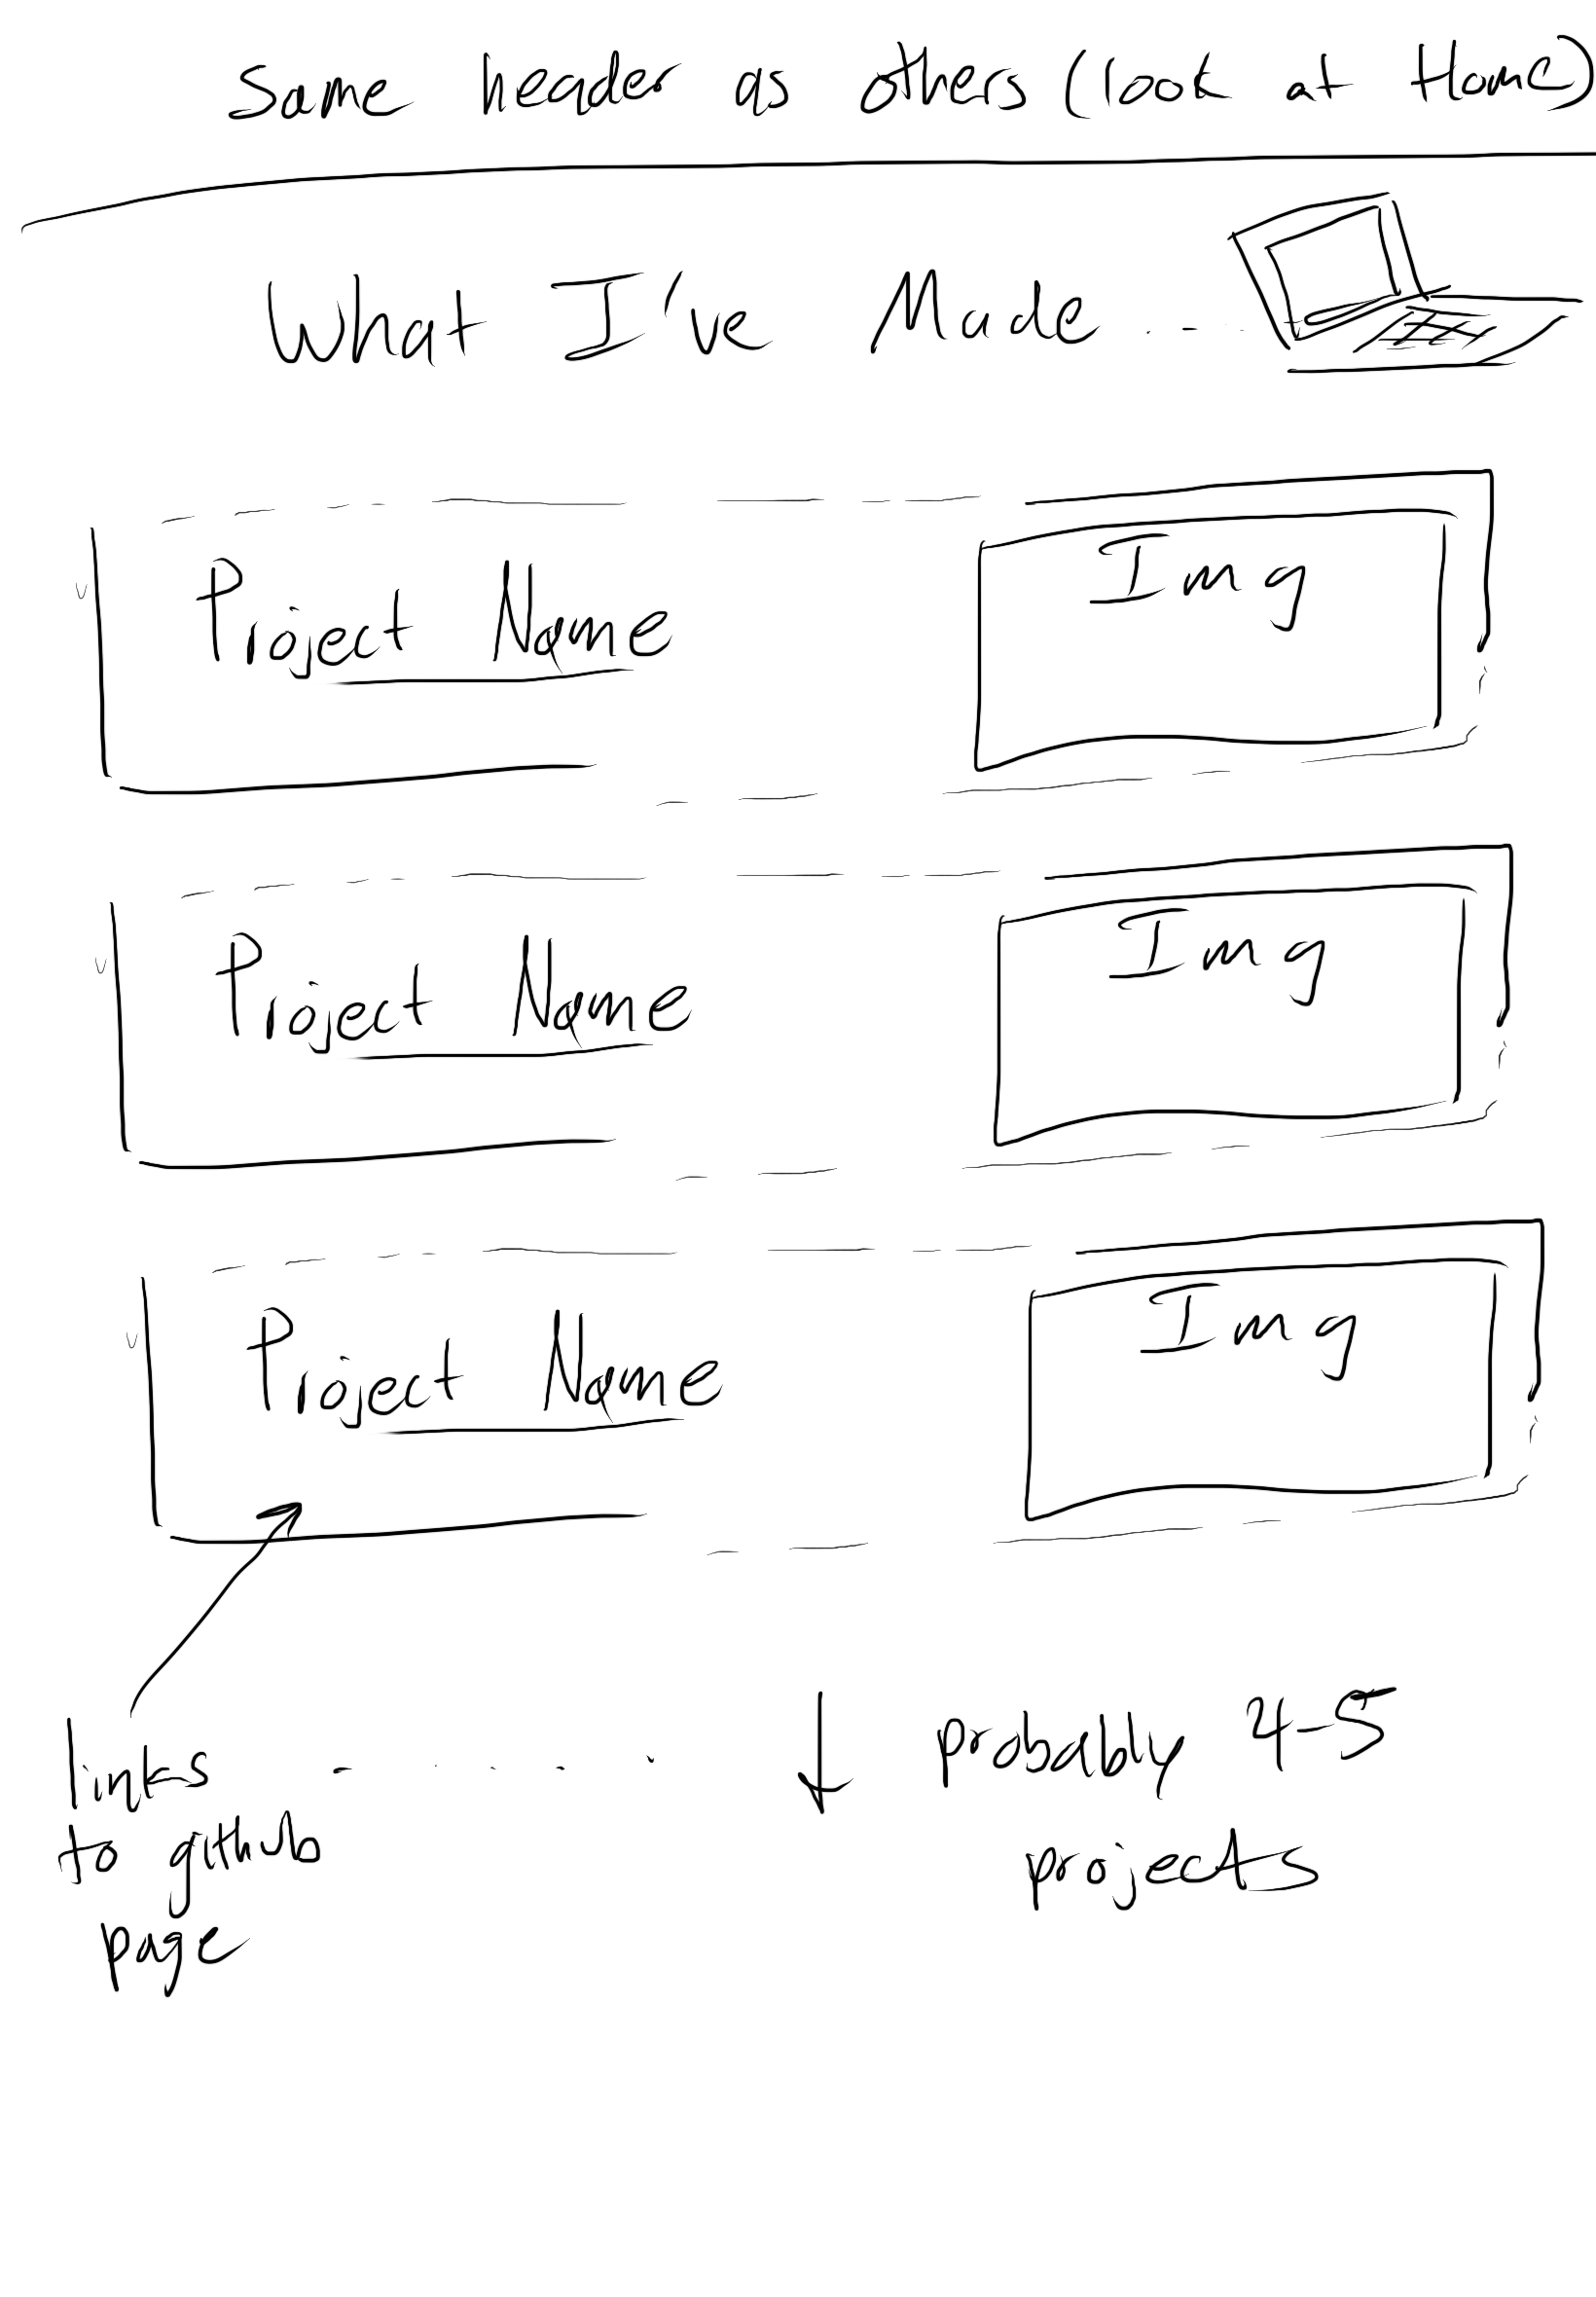 Same header as others (look at Home)
What I've Made
Project Name
Img
Project Name
Img
Project Name
Img
links
to github
page
probably 4-5
projects